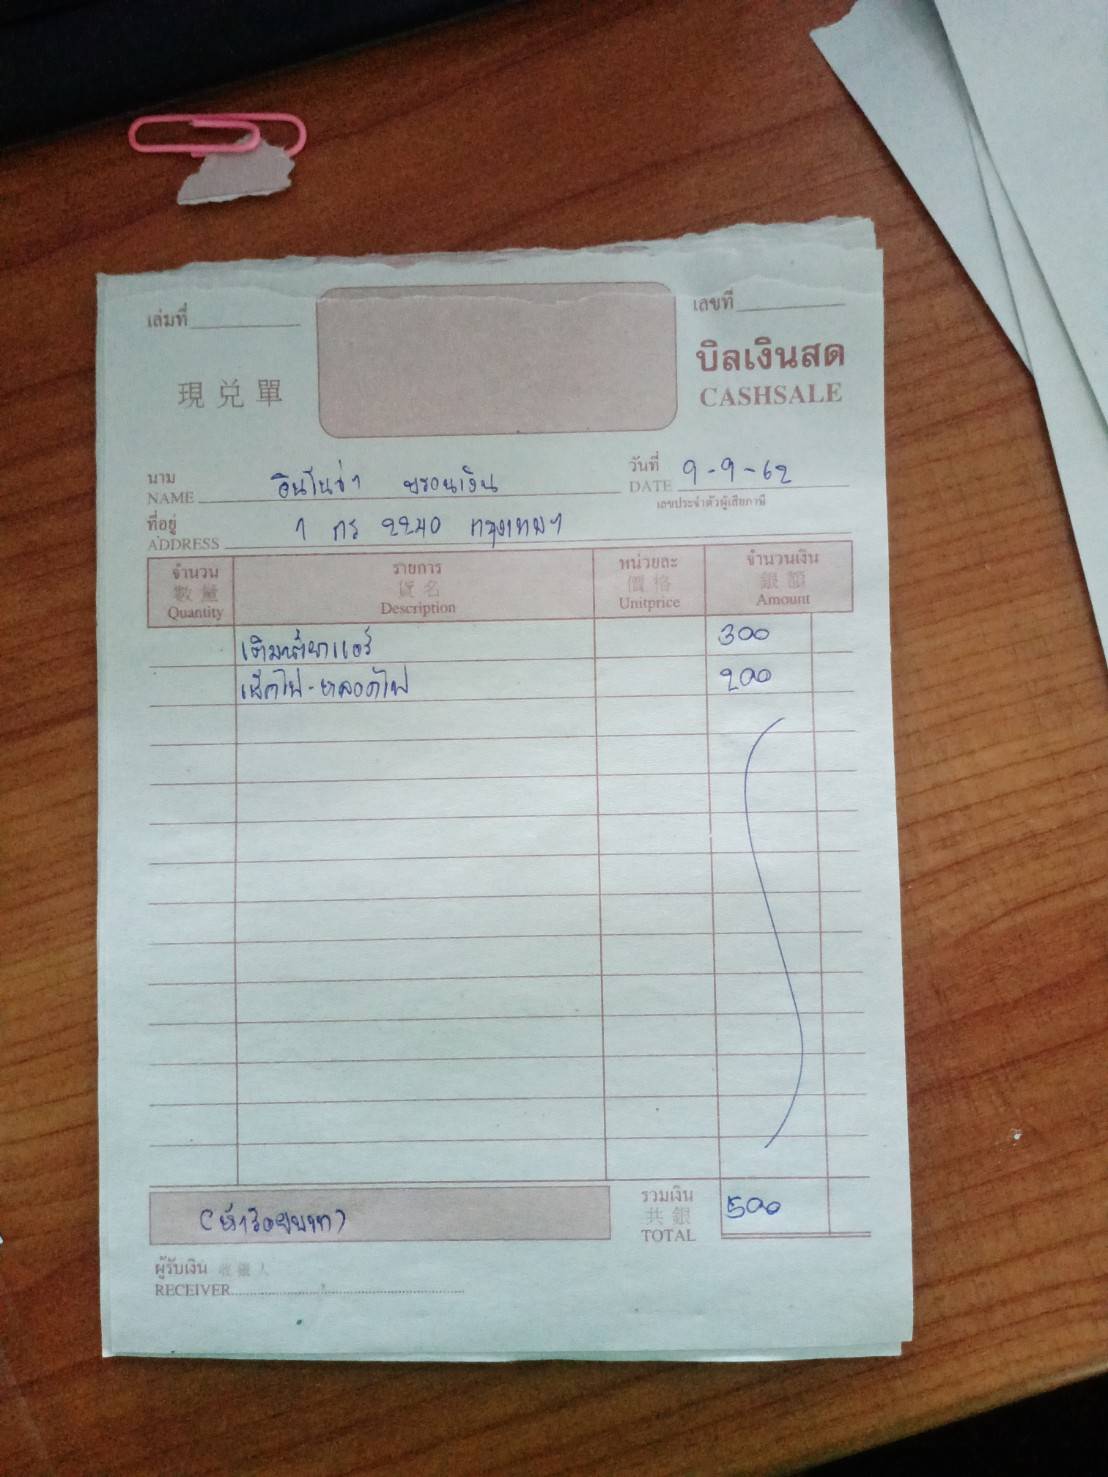 เล่มที่
เลขที่
บิลเงินสด
現兑單
CASHSALE
นาม
NAME อินโนว่า บรอนเงิน
วันที่
DATE 9-9-62
เลขประจำตัวผู้เสียภาษี
ที่อยู่
ADDRESS 1 กร 2240 กรุงเทพฯ
จำนวน รายการ หน่วยละ จำนวนเงิน
數量 貨名 價格 銀額
Quantity Description Unitprice Amount
เติมน้ำยาแอร์ 300
เช็คไฟ-หลอดไฟ 200
รวมเงิน
共銀
TOTAL 500
(ห้าร้อยบาท)
ผู้รับเงิน 收銀人
RECEIVER